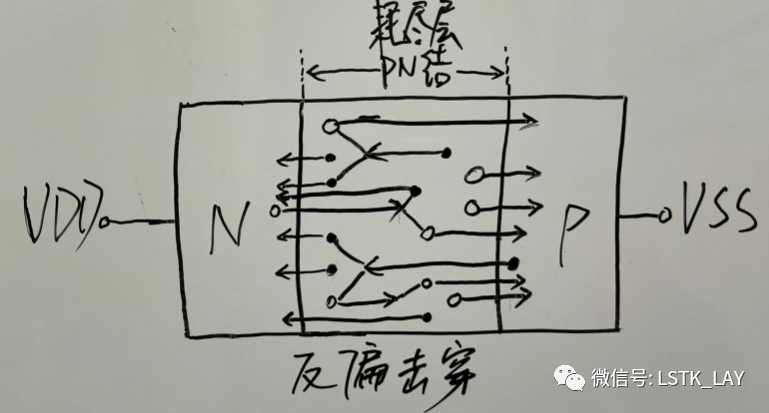 耗尽层
PN结
VDD
N
P
VSS
反偏击穿
微信号: LSTK_LAY